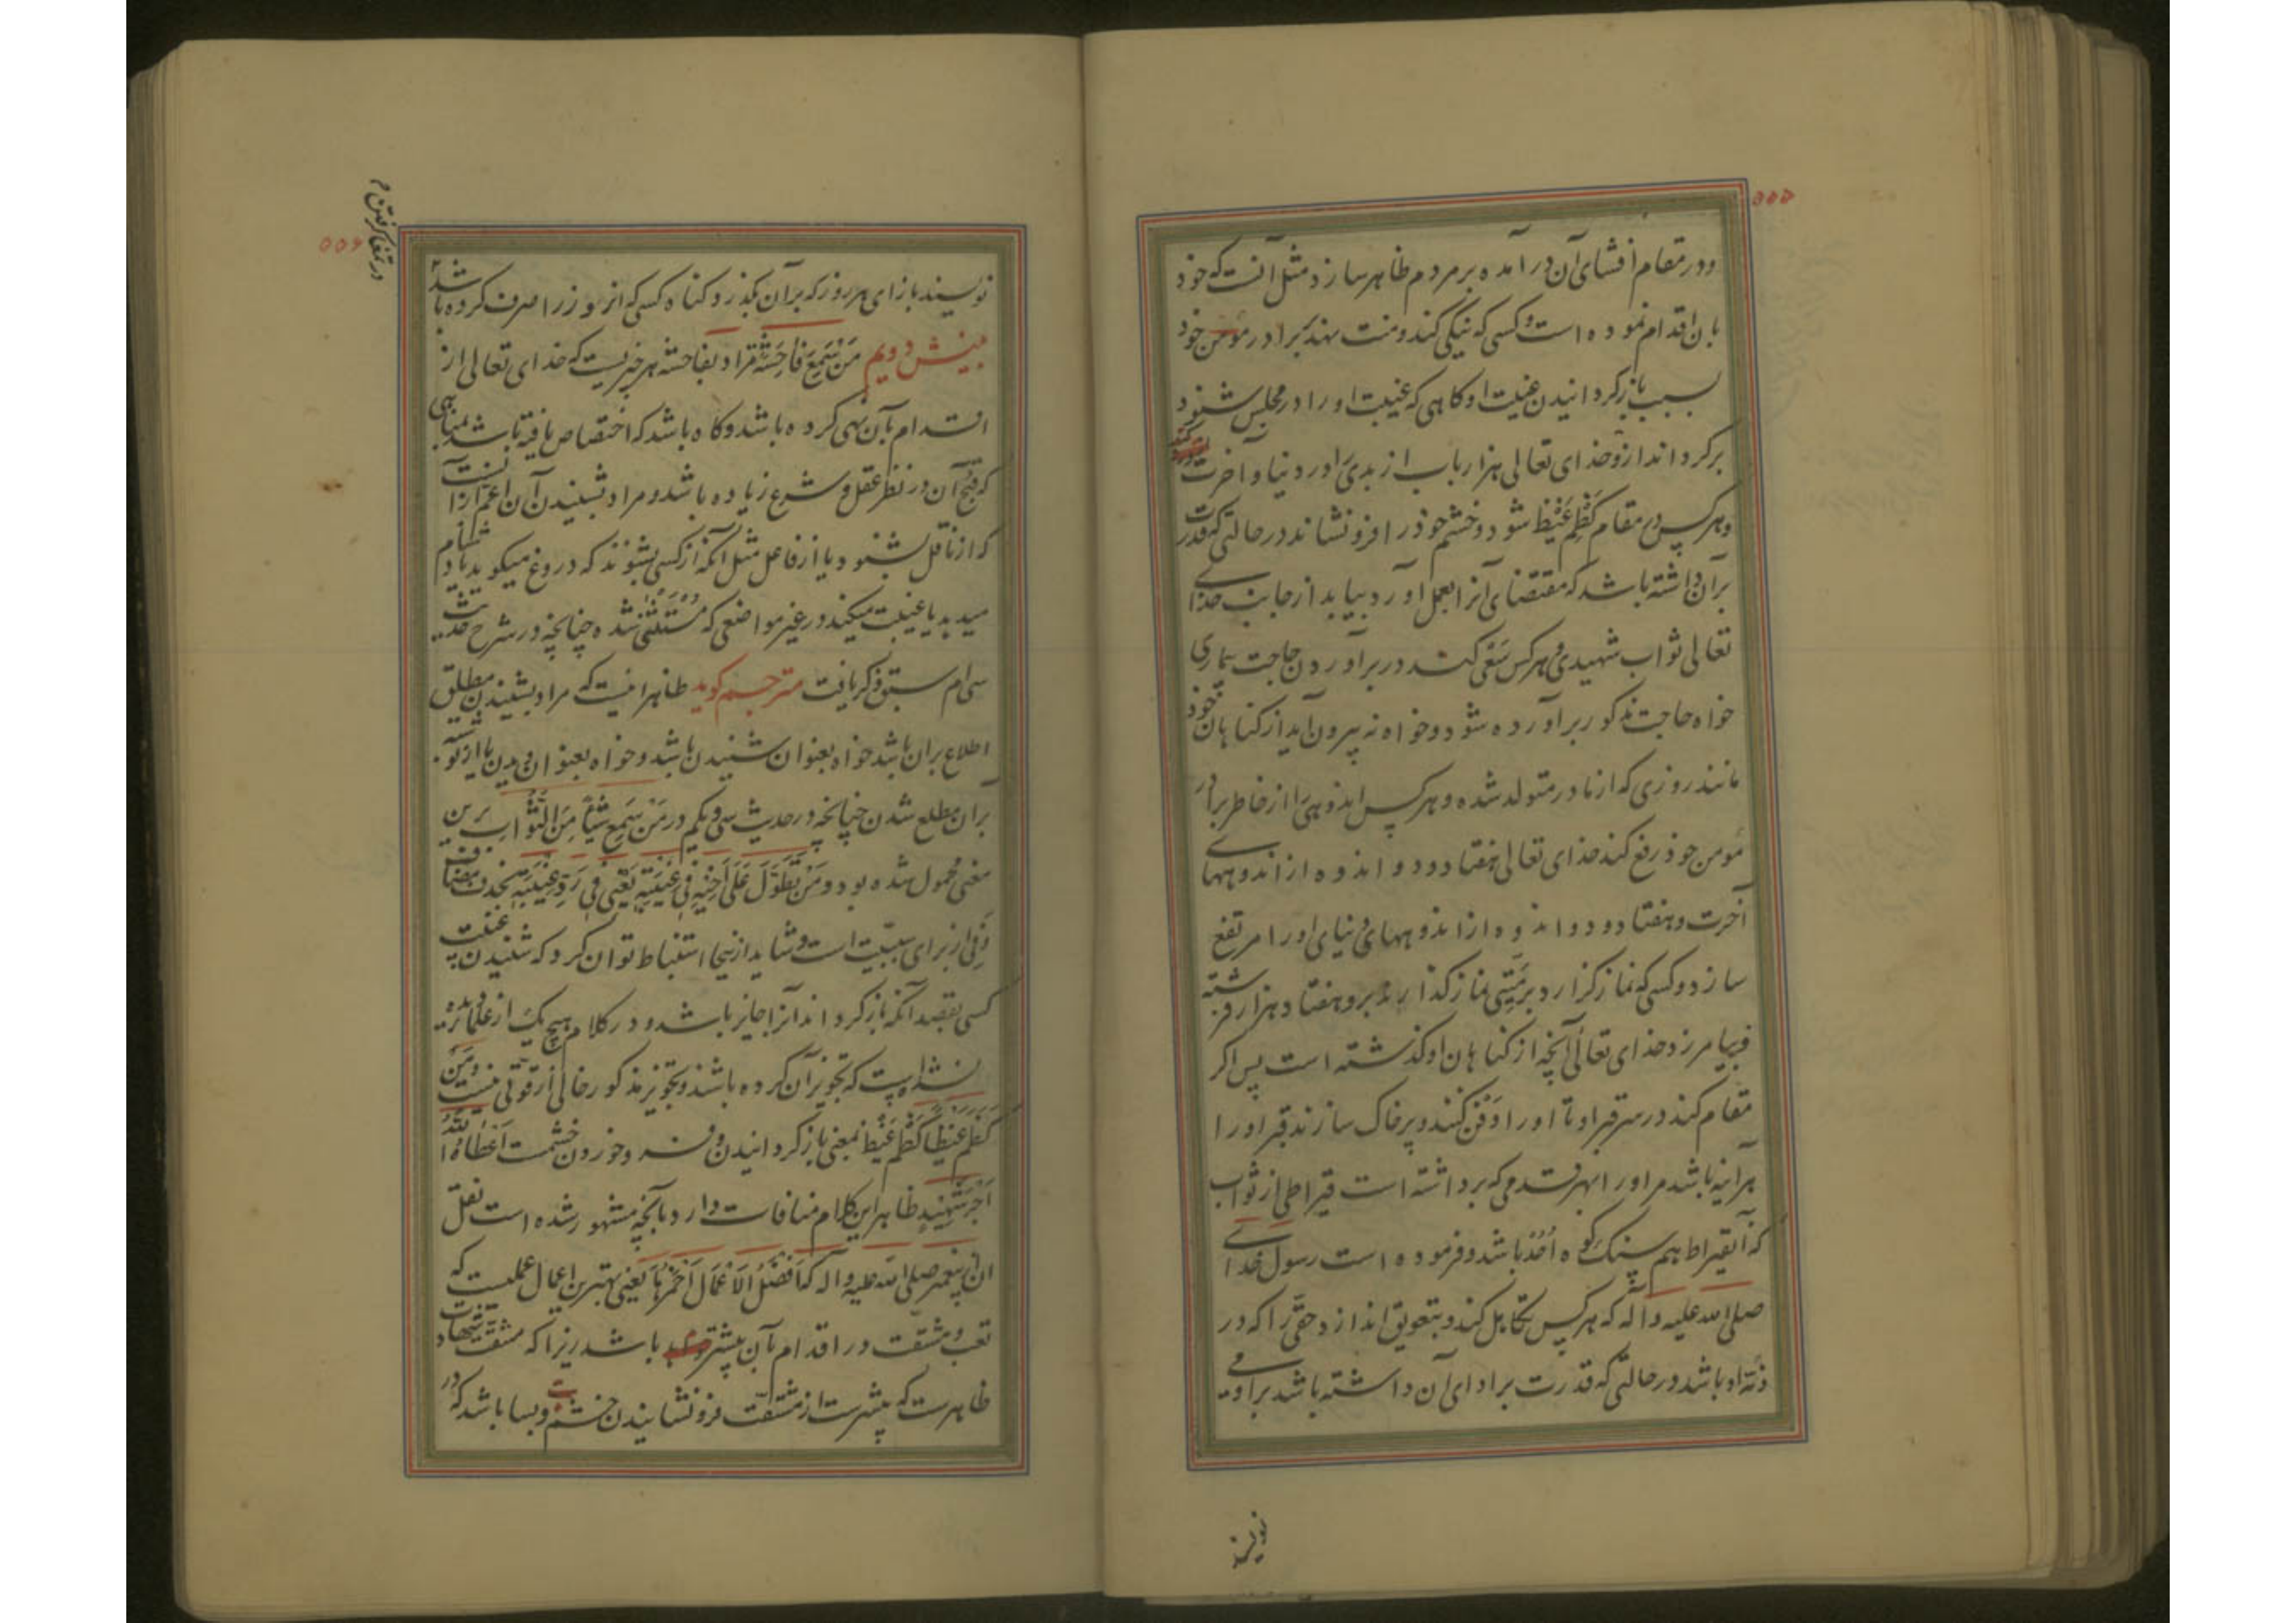 ۵۵۵
ودر مقام افشای آن در آمده بر مردم ظاهر سازد مثل آنست که خود
بان اقدام نموده است و کسی که نیکی کند و منت نهد بر برادر مؤمن خود
بسبب باز کردانیدن غیبت او کاهی که غیبت او را در مجلس شنود
بر کرداند ازو خدای تعالی هزار باب از بدی را در دنیا و آخرت
و هر کس در مقام کظم غیظ شود و خشم خود را فرو نشاند در حالتی که قدرت
بر آن داشته باشد که مقتضای آنرا بعمل آورد بیابد از جانب خدای
تعالی ثواب شهیدی و هر کس سعی کند در بر آوردن حاجت بیماری
خواه حاجت مذکور بر آورده شود و خواه نه بیرون آید از کناهان خود
مانند روزی که از مادر متولد شده و هر کس اندوهی را از خاطر برادر
مؤمن خود رفع کند خدای تعالی هفتاد و دو اندوه از اندوههای
آخرت و هفتاد و دو اندوه از اندوههای دنیای او را مرتفع
سازد و کسی که نماز کزارد بر میتی نماز کذارند برو هفتاد هزار فرشته
و بیامرزد خدای تعالی آنچه از کناهان او کذشته است پس اکر
مقام کند در سر قبر او تا او را دفن کنند و پر خاک سازند قبر او را
هر آینه باشد مر او را بهر قدمی که برداشته است قیراطی از ثواب
که آن قیراط بهم سنک کوه احد باشد و فرموده است رسول خدای
صلی الله علیه و آله که هر کس تکاهل کند و بتعویق اندازد حقی را که در
ذمه او باشد در حالتی که قدرت بر ادای آن داشته باشد بر او می
نویسند
۵۵۶
نویسند بازای هر روز که بر آن بکذرد کناه کسی که از و زر را صرف کرده باشد
بینش دویم مَنْ سَمِعَ فَاحِشَةً مراد بفاحشه هر چیزیست که خدای تعالی از
اقدام بآن نهی کرده باشد و کاه باشد که اختصاص یافته باشد بمناهی
که قبح آن در نظر عقل و شرع زیاده باشد و مراد بشنیدن آن اعم از آنست
که از ناقل بشنود یا از فاعل مثل آنکه از کسی بشنوند که دروغ میکوید یا دشنام
میدهد یا غیبت میکند در غیر مواضعی که مستثنی شده چنانچه در شرح حدیث
سی ام سبق ذکر یافت مترجم کوید ظاهر اینست که مراد بشنیدن مطلق
اطلاع بر آن باشد خواه بعنوان شنیدن باشد و خواه بعنوان دیدن یا از نوشته
بر آن مطلع شدن چنانچه در حدیث سی و یکم در مَنْ سَمِعَ شَیْئًا مِنَ الثَّوَابِ بر این
معنی محمول شده بود وَمَنْ تَطَوَّلَ عَلَی أَخِیهِ فِی غِیبَتِهِ یَعْنِی فِی رَدِّ غِیبَتِهِ بحذف مضاف
و فی از برای سببیت است و شاید از ینجا استنباط توان کرد که شنیدن غیبت
کسی بقصد آنکه باز کرداند آنرا جایز باشد و در کلام هیچ یک از علما دیده
نشده است که تجویز آن کرده باشند و تجویز مذکور خالی از قوتی نیست وَمَنْ
کَظَمَ غَیْظًا کَظْم غَیْظ بمعنی باز کردانیدن و فرو خوردن خشمست اَعْطَاهُ اللّٰهُ
اَجْرَ شَهِیدٍ ظاهر این کلام منافات دارد بآنچه مشهور شده است نقل
آن از پیغمبر صلی الله علیه و آله که اَفْضَلُ الْاَعْمَالِ اَحْمَزُهَا یعنی بهترین اعمال عملیست که
تعب و مشقت در اقدام بآن بیشتر باشد زیرا که مشقت جهاد
ظاهرست که بیشترست از مشقت فرو نشانیدن خشم و بسا باشد که در